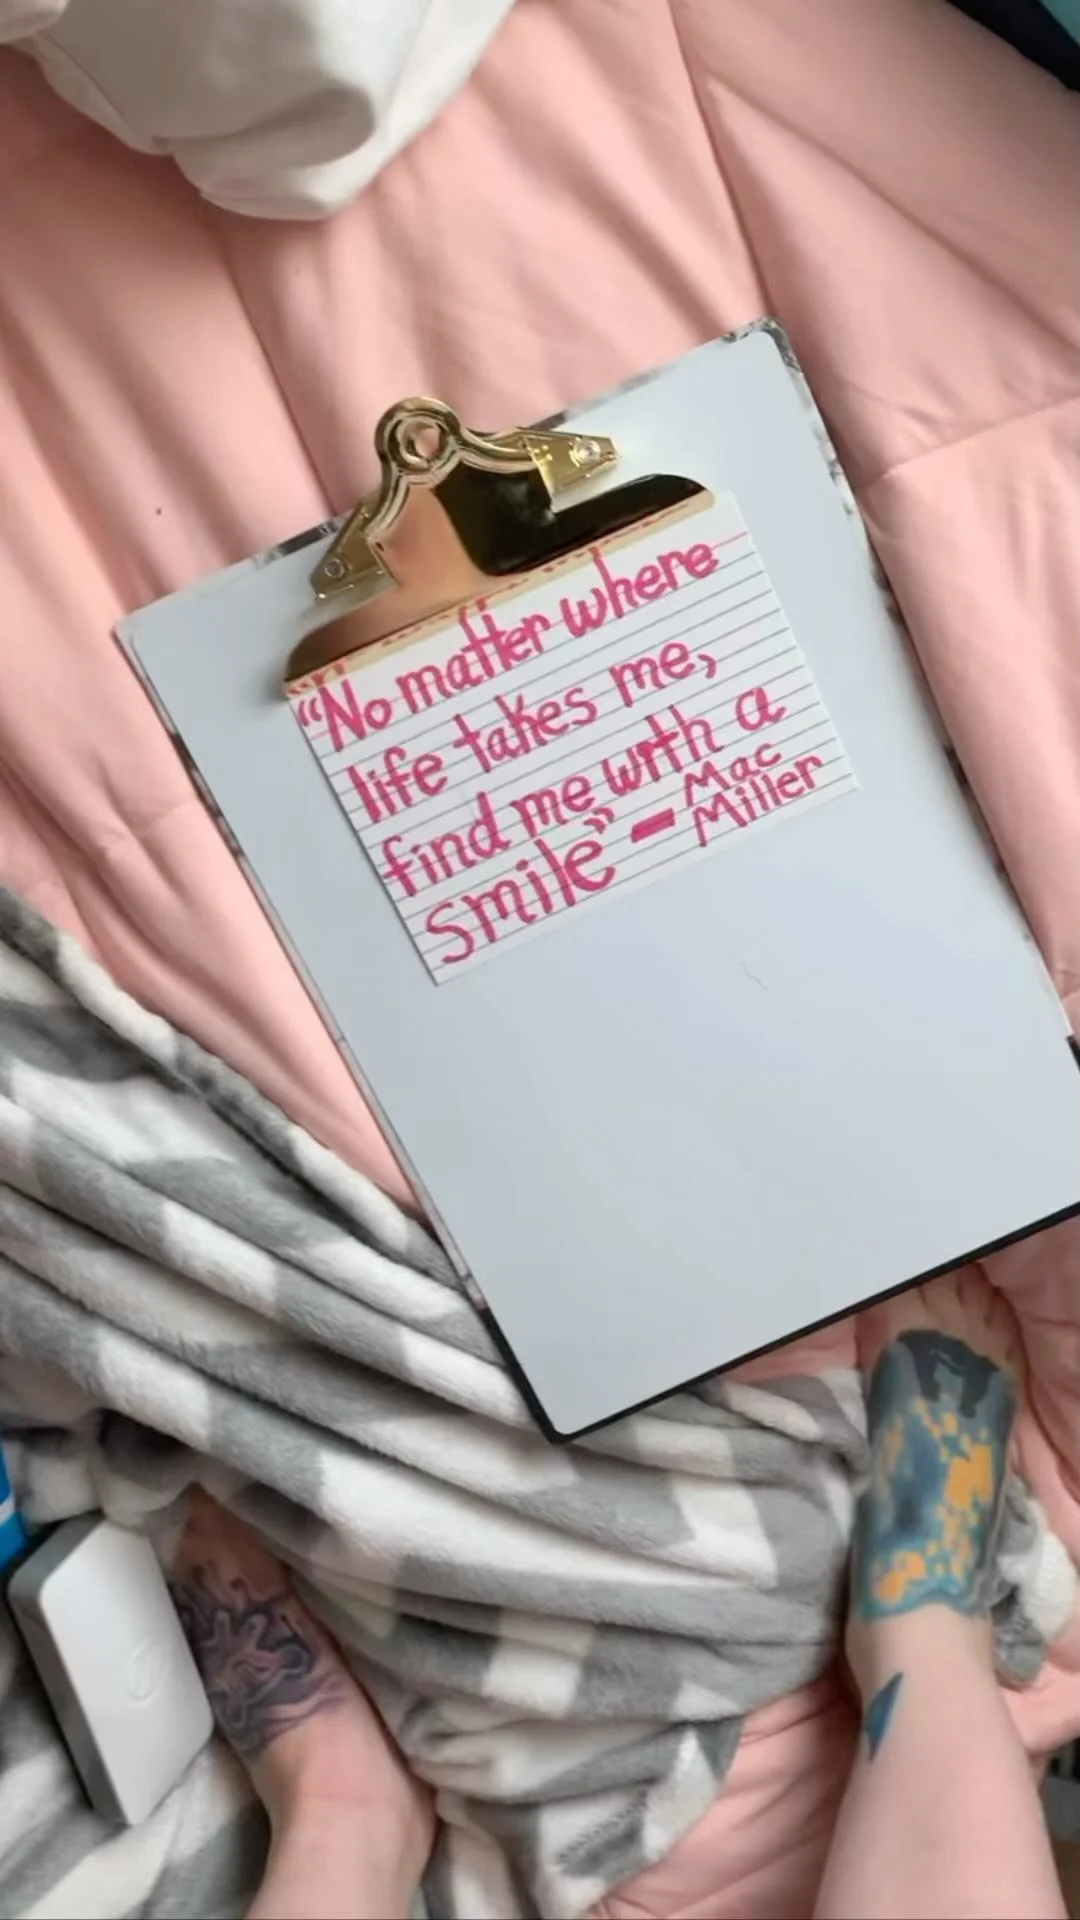 "No matter where
life takes me,
find me with a
smile" - Mac
Miller